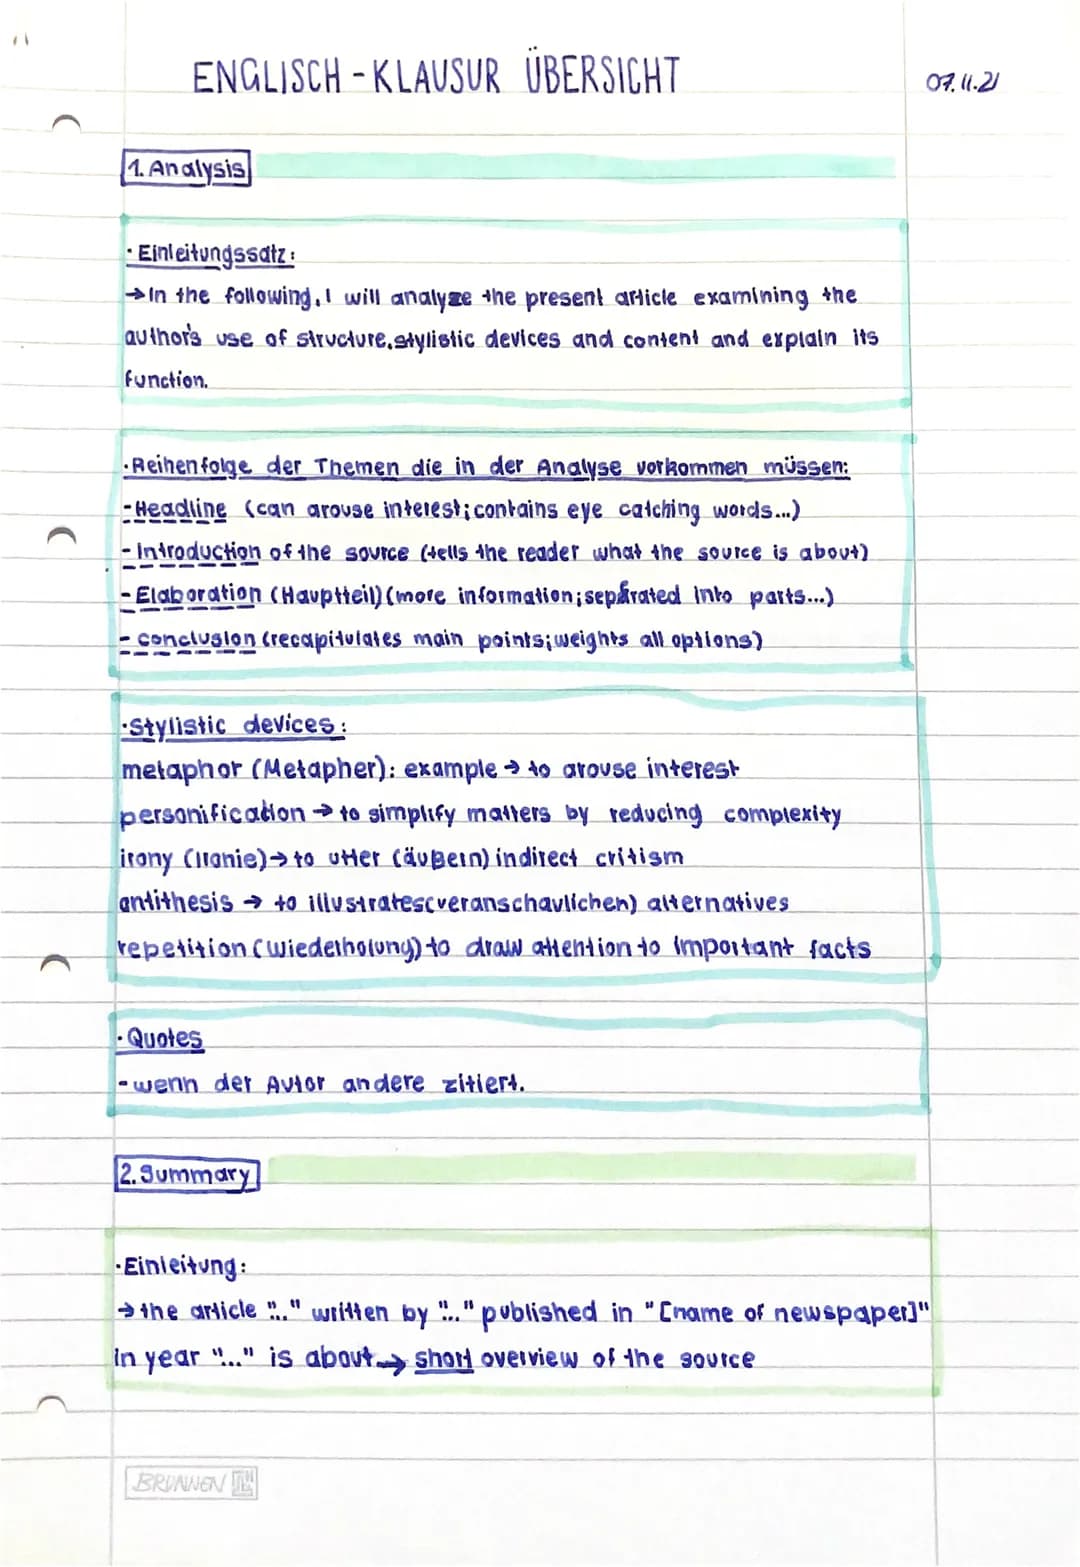 ENGLISCH-KLAUSUR ÜBERSICHT
07.11.21
1. Analysis
· Einleitungssatz:
→In the following, I will analyze the present article examining the
author's use of structure, stylistic devices and content and explain its
function.
·Reihenfolge der Themen die in der Analyse vorkommen müssen:
-Headline (can arouse interest; contains eye catching words...)
-Introduction of the source (tells the reader what the source is about)
-Elaboration (Hauptteil) (more information; separated into parts...)
-conclusion (recapitulates main points; weights all options)
·Stylistic devices:
metaphor (Metapher): example → to arouse interest
personification → to simplify matters by reducing complexity
irony (Ironie) → to utter (äußern) indirect critism
antithesis → to illustrates (veranschaulichen) alternatives
repetition (Wiederholung) to draw attention to important facts
·Quotes
-wenn der Autor andere zitiert.
2. Summary
·Einleitung:
→ the article "..." written by "..." published in "[name of newspaper]"
in year "..." is about → short overview of the source
BRUNNEN